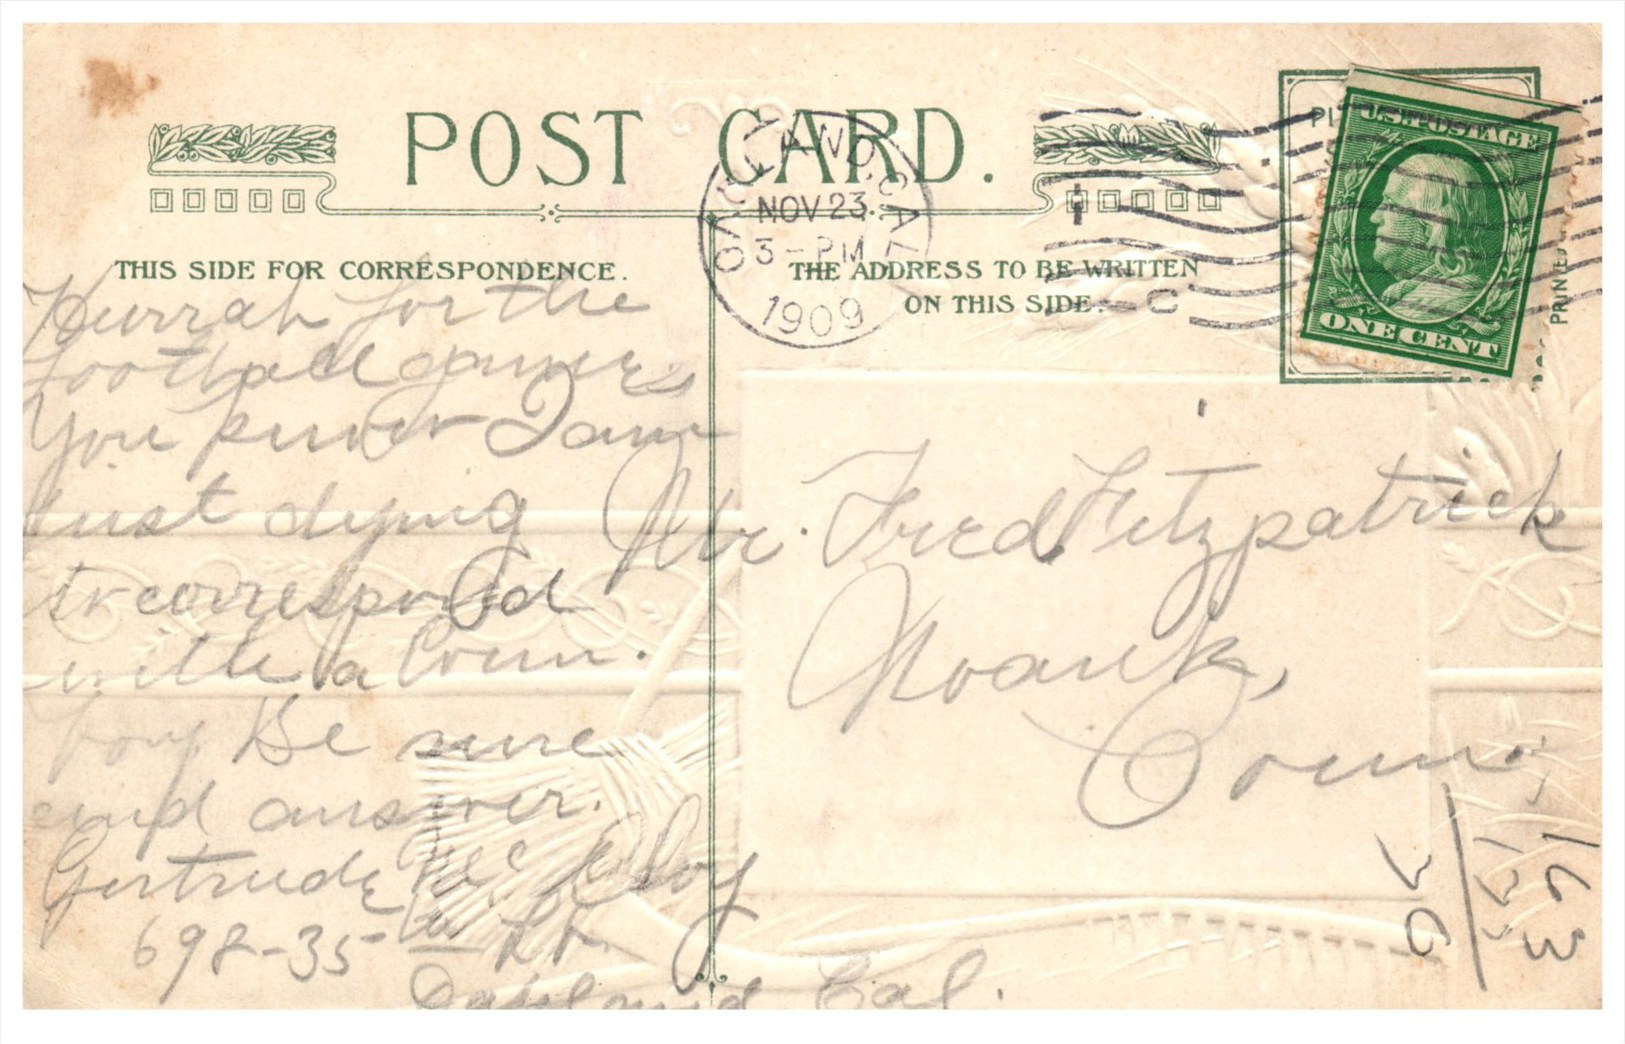 POST CARD.
OAKLAND, CAL.
NOV 23.
3 - PM
1909
U.S. POSTAGE
ONE CENT
PRINTED
THIS SIDE FOR CORRESPONDENCE.
THE ADDRESS TO BE WRITTEN
ON THIS SIDE.
Hurrah for the
football games
You know I am
just dying
to correspond
with a Conn.
boy Be sure
and answer.
Gertrude McElroy
698-35th St.
Oakland Cal.
Mr. Fred Fitzpatrick
Noank,
Conn.
163